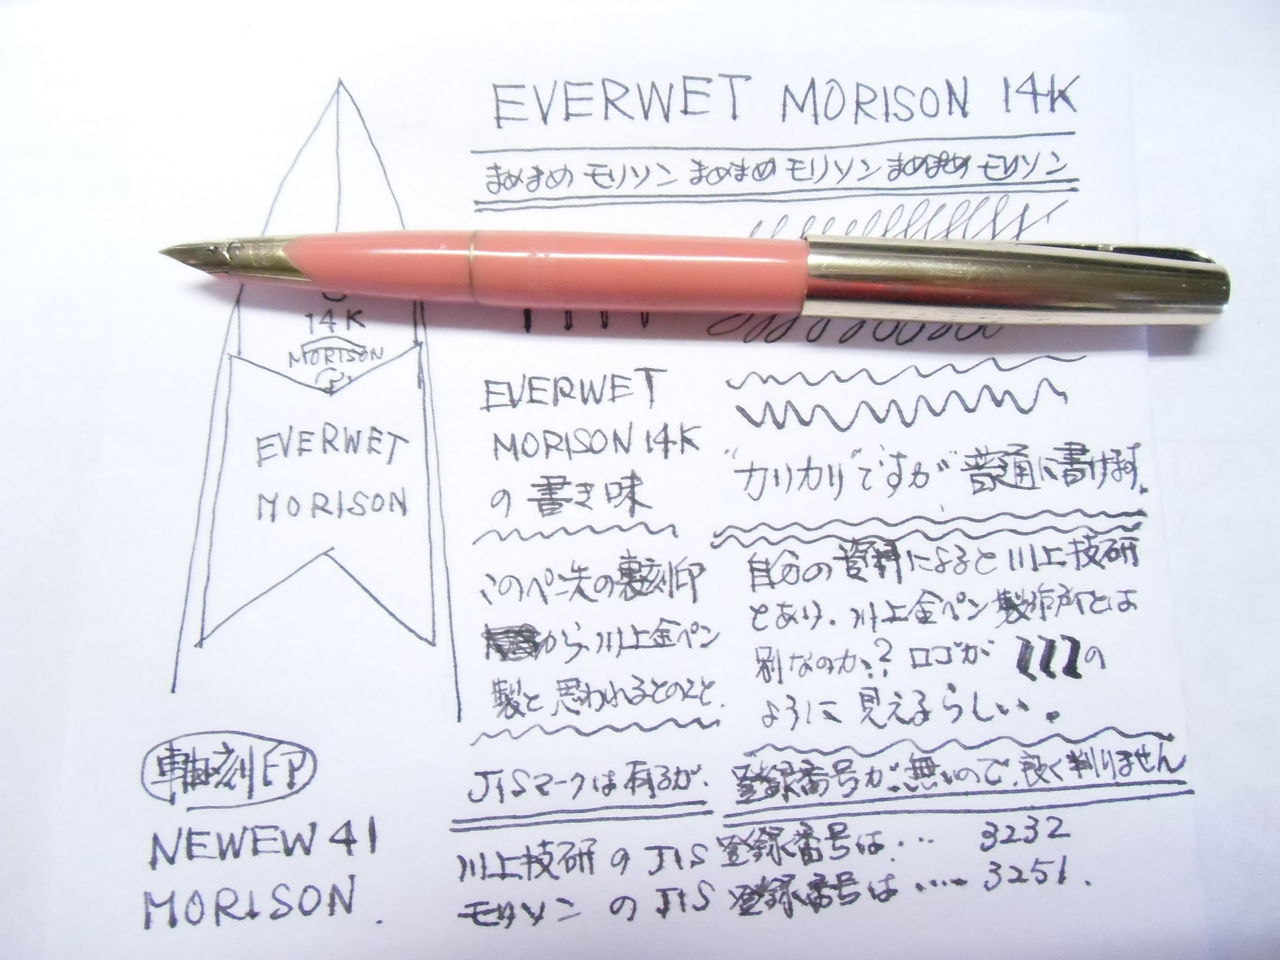 EVERWET MORISON 14K
まめまめ モリソン まめまめ モリソン まめまめ モリソン
14K
MORISON
EVERWET
MORISON
EVERWET
MORISON 14K
の 書き味
"カリカリ"ですが 普通に書けます。
このペン先の裏刻印
から、川上金ペン
製と思われるとのこと。
自分の資料によると川上技研
とあり、川上金ペン製作所とは
別なのか? ロゴが の
ように見えるらしい。
軸刻印
NEWEW 41
MORISON.
JISマークは有るが、登録番号が無いので、良く判りません
川上技研のJIS登録番号は… 3232
モリソンのJIS登録番号は…… 3251.